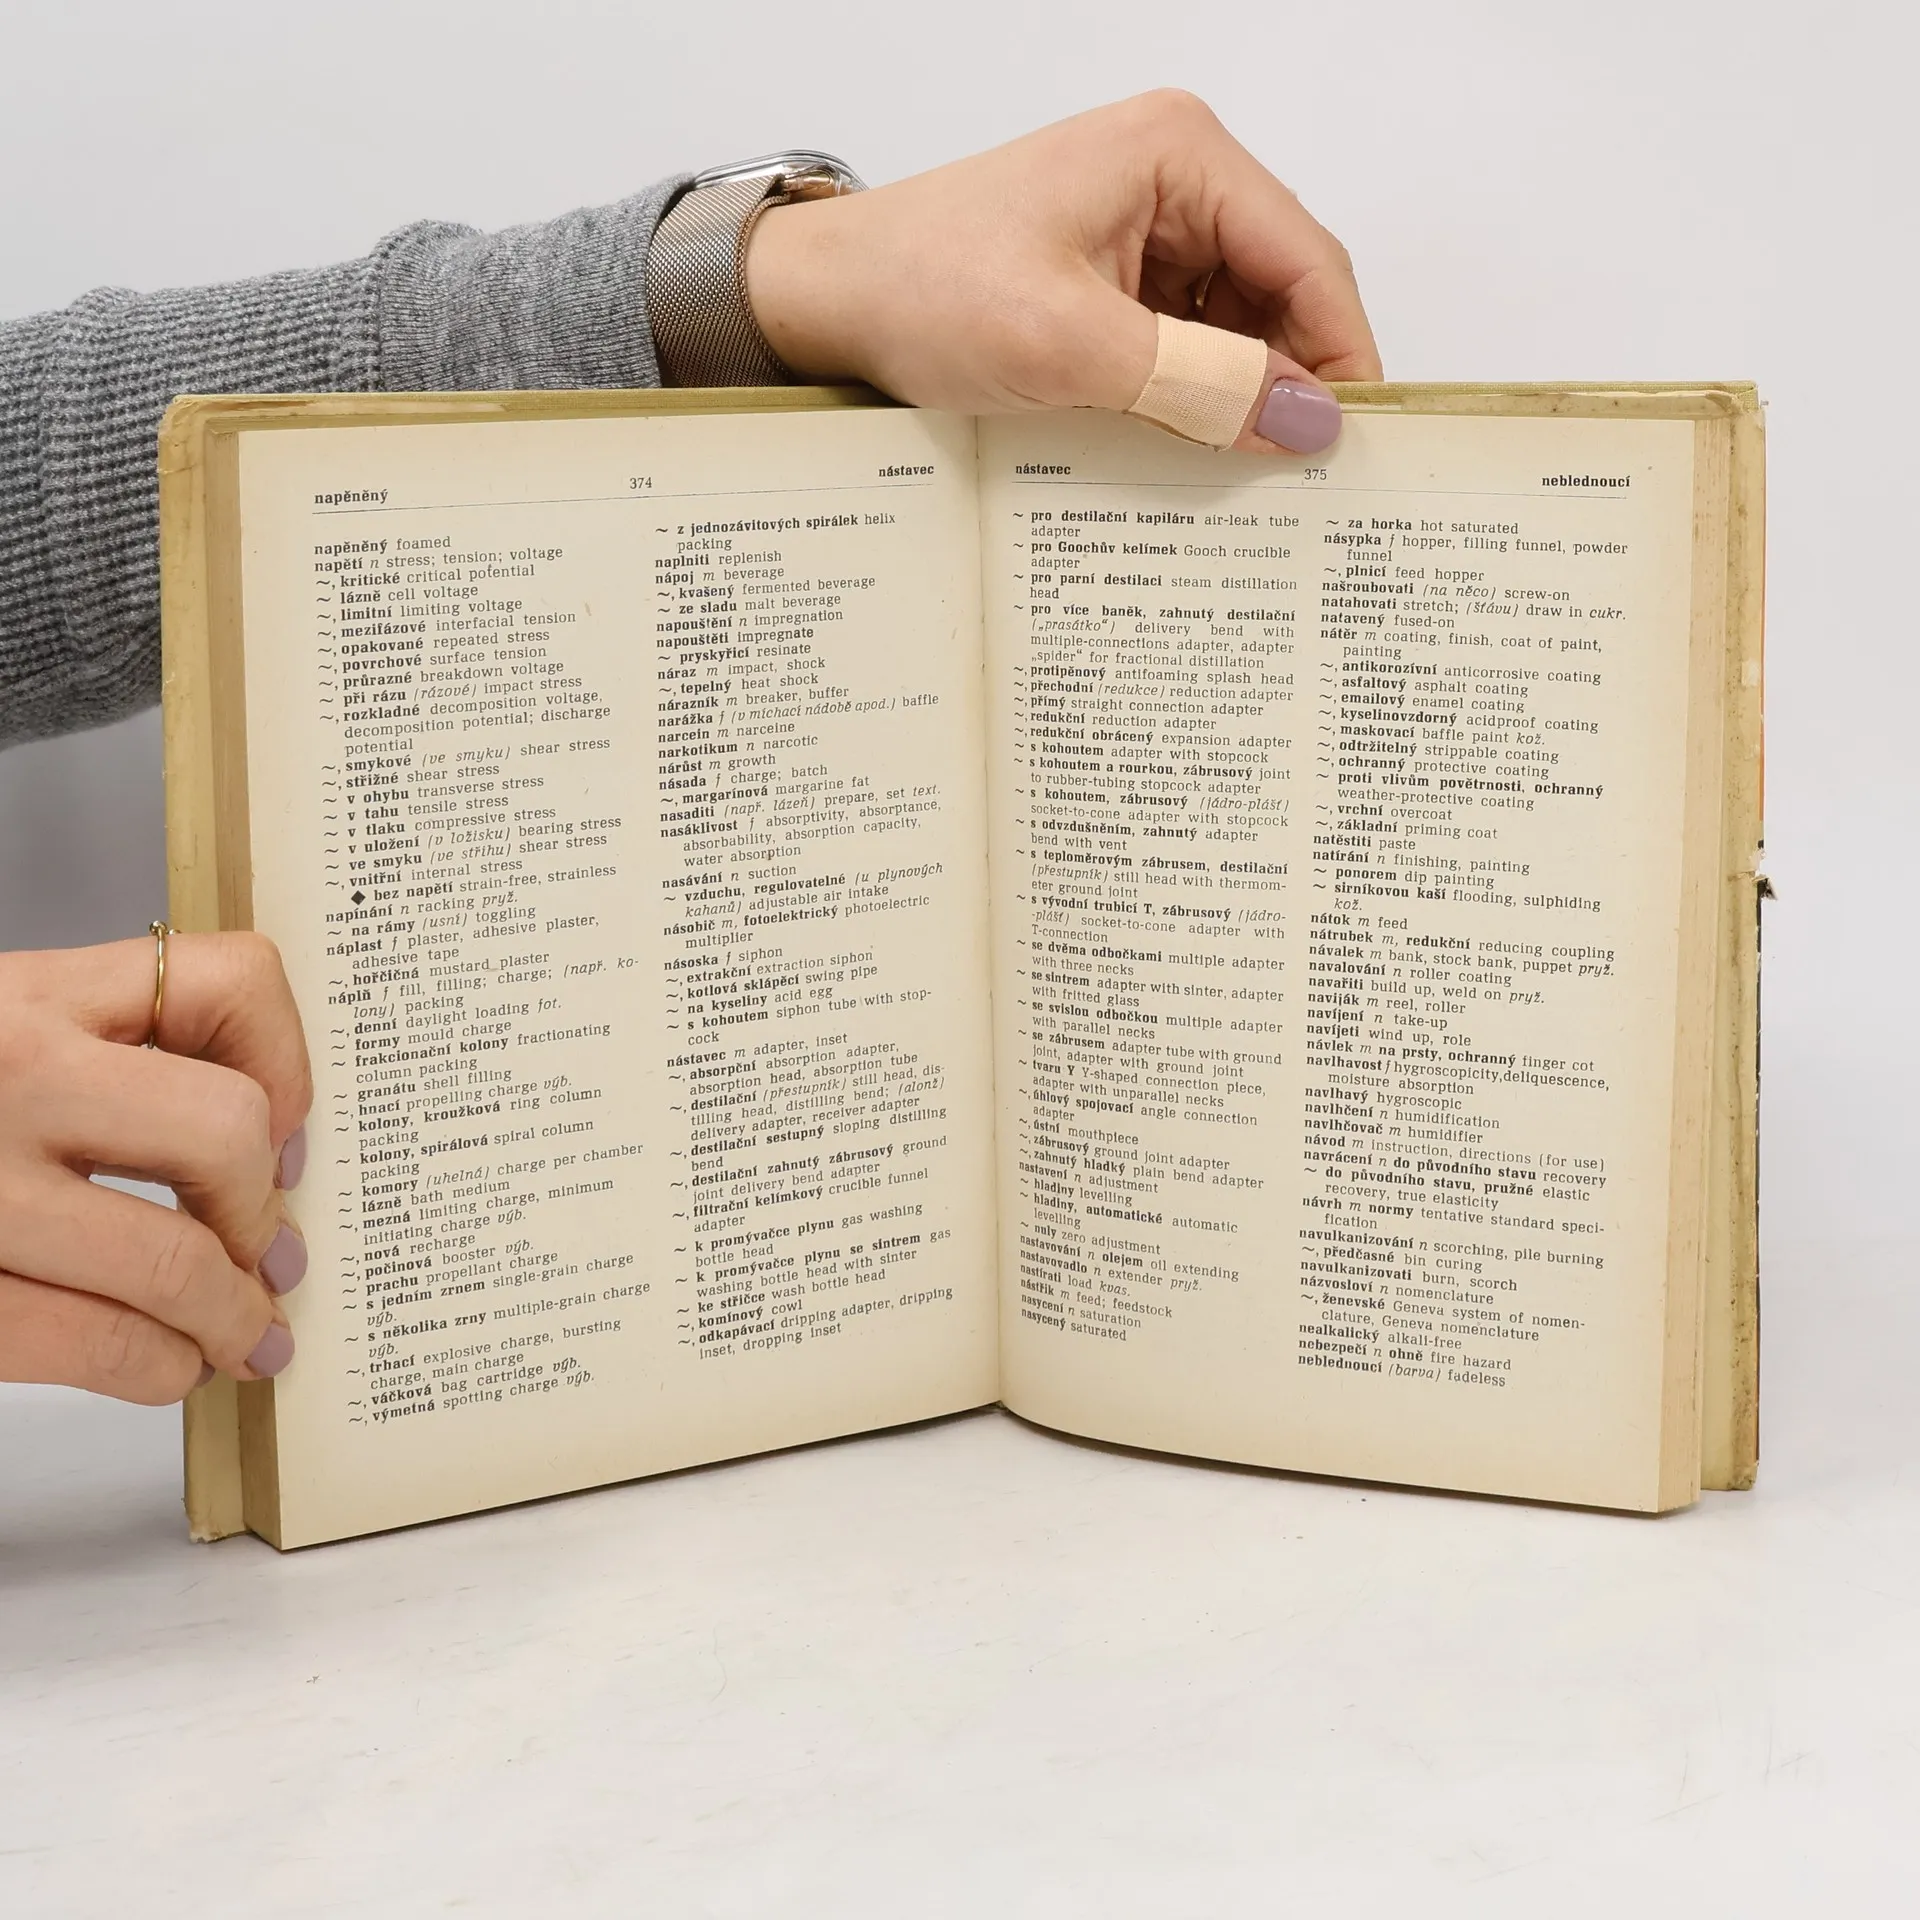 napěněný 374 nástavec
napěněný foamed
napětí n stress; tension; voltage
~, kritické critical potential
~ lázně cell voltage
~, limitní limiting voltage
~, mezifázové interfacial tension
~, opakované repeated stress
~, povrchové surface tension
~, průrazné breakdown voltage
~ při rázu (rázové) impact stress
~, rozkladné decomposition voltage,
decomposition potential; discharge
potential
~, smykové (ve smyku) shear stress
~, střižné shear stress
~ v ohybu transverse stress
~ v tahu tensile stress
~ v tlaku compressive stress
~ v uložení (v ložisku) bearing stress
~ ve smyku (ve střihu) shear stress
~, vnitřní internal stress
◆ bez napětí strain-free, strainless
napínání n racking pryž.
~ na rámy (usní) toggling
náplast f plaster, adhesive plaster,
adhesive tape
~, hořčičná mustard plaster
náplň f fill, filling; charge; (např. ko-
lony) packing
~, denní daylight loading fot.
~ formy mould charge
~ frakcionační kolony fractionating
column packing
~ granátu shell filling
~, hnací propelling charge výb.
~ kolony, kroužková ring column
packing
~ kolony, spirálová spiral column
packing
~ komory (uhelná) charge per chamber
~ lázně bath medium
~, mezná limiting charge, minimum
initiating charge výb.
~, nová recharge
~, počinová booster výb.
~ prachu propellant charge
~ s jedním zrnem single-grain charge
výb.
~ s několika zrny multiple-grain charge
výb.
~, trhací explosive charge, bursting
charge, main charge
~, váčková bag cartridge výb.
~, výmetná spotting charge výb.
~ z jednozávitových spirálek helix
packing
naplniti replenish
nápoj m beverage
~, kvašený fermented beverage
~ ze sladu malt beverage
napouštění n impregnation
napouštěti impregnate
~ pryskyřicí resinate
náraz m impact, shock
~, tepelný heat shock
nárazník m breaker, buffer
narážka f (v míchací nádobě apod.) baffle
narcein m narceine
narkotikum n narcotic
nárůst m growth
násada f charge; batch
~, margarínová margarine fat
nasaditi (např. lázeň) prepare, set text.
nasáklivost f absorptivity, absorptance,
absorbability, absorption capacity,
water absorption
nasávání n suction
~ vzduchu, regulovatelné (u plynových
kahanů) adjustable air intake
násobič m, fotoelektrický photoelectric
multiplier
násoska f siphon
~, extrakční extraction siphon
~, kotlová sklápěcí swing pipe
~ na kyseliny acid egg
~ s kohoutem siphon tube with stop-
cock
nástavec m adapter, inset
~, absorpční absorption adapter,
absorption head, absorption tube
~, destilační (přestupník) still head, dis-
tilling head, distilling bend; (alonž)
delivery adapter, receiver adapter
~, destilační sestupný sloping distilling
bend
~, destilační zahnutý zábrusový ground
joint delivery bend adapter
~, filtrační kelímkový crucible funnel
adapter
~ k promývačce plynu gas washing
bottle head
~ k promývačce plynu se sintrem gas
washing bottle head with sinter
~ ke střičce wash bottle head
~, komínový cowl
~, odkapávací dripping adapter, dripping
inset, dropping inset
nástavec 375 neblednoucí
~ pro destilační kapiláru air-leak tube
adapter
~ pro Goochův kelímek Gooch crucible
adapter
~ pro parní destilaci steam distillation
head
~ pro více baněk, zahnutý destilační
(„prasátko“) delivery bend with
multiple-connections adapter, adapter
„spider“ for fractional distillation
~, protipěnový antifoaming splash head
~, přechodní (redukce) reduction adapter
~, přímý straight connection adapter
~, redukční reduction adapter
~, redukční obrácený expansion adapter
~ s kohoutem adapter with stopcock
~ s kohoutem a rourkou, zábrusový joint
to rubber-tubing stopcock adapter
~ s kohoutem, zábrusový (jádro-plášť)
socket-to-cone adapter with stopcock
~ s odvzdušněním, zahnutý adapter
bend with vent
~ s teploměrovým zábrusem, destilační
(přestupník) still head with thermom-
eter ground joint
~ s vývodní trubicí T, zábrusový (jádro-
-plášť) socket-to-cone adapter with
T-connection
~ se dvěma odbočkami multiple adapter
with three necks
~ se sintrem adapter with sinter, adapter
with fritted glass
~ se svislou odbočkou multiple adapter
with parallel necks
~ se zábrusem adapter tube with ground
joint, adapter with ground joint
~ tvaru Y Y-shaped connection piece,
adapter with unparallel necks
~, úhlový spojovací angle connection
adapter
~, ústní mouthpiece
~, zábrusový ground joint adapter
~, zahnutý hladký plain bend adapter
nastavení n adjustment
~ hladiny levelling
~ hladiny, automatické automatic
levelling
~ nuly zero adjustment
nastavování n olejem oil extending
nastavovadlo n extender pryž.
nastírati load kvas.
nástřik m feed; feedstock
nasycení n saturation
nasycený saturated
~ za horka hot saturated
násypka f hopper, filling funnel, powder
funnel
~, plnicí feed hopper
našroubovati (na něco) screw-on
natahovati stretch; (šťávu) draw in cukr.
natavený fused-on
nátěr m coating, finish, coat of paint,
painting
~, antikorozívní anticorrosive coating
~, asfaltový asphalt coating
~, emailový enamel coating
~, kyselinovzdorný acidproof coating
~, maskovací baffle paint kož.
~, odtržitelný strippable coating
~, ochranný protective coating
~ proti vlivům povětrnosti, ochranný
weather-protective coating
~, vrchní overcoat
~, základní priming coat
natěstiti paste
natírání n finishing, painting
~ ponorem dip painting
~ sirníkovou kaší flooding, sulphiding
kož.
nátok m feed
nátrubek m, redukční reducing coupling
návalek m bank, stock bank, puppet pryž.
navalování n roller coating
navařiti build up, weld on pryž.
naviják m reel, roller
navíjení n take-up
navíjeti wind up, role
návlek m na prsty, ochranný finger cot
navlhavost f hygroscopicity,deliquescence,
moisture absorption
navlhavý hygroscopic
navlhčení n humidification
navlhčovač m humidifier
návod m instruction, directions (for use)
navrácení n do původního stavu recovery
~ do původního stavu, pružné elastic
recovery, true elasticity
návrh m normy tentative standard speci-
fication
navulkanizování n scorching, pile burning
~, předčasné bin curing
navulkanizovati burn, scorch
názvosloví n nomenclature
~, ženevské Geneva system of nomen-
clature, Geneva nomenclature
nealkalický alkali-free
nebezpečí n ohně fire hazard
neblednoucí (barva) fadeless